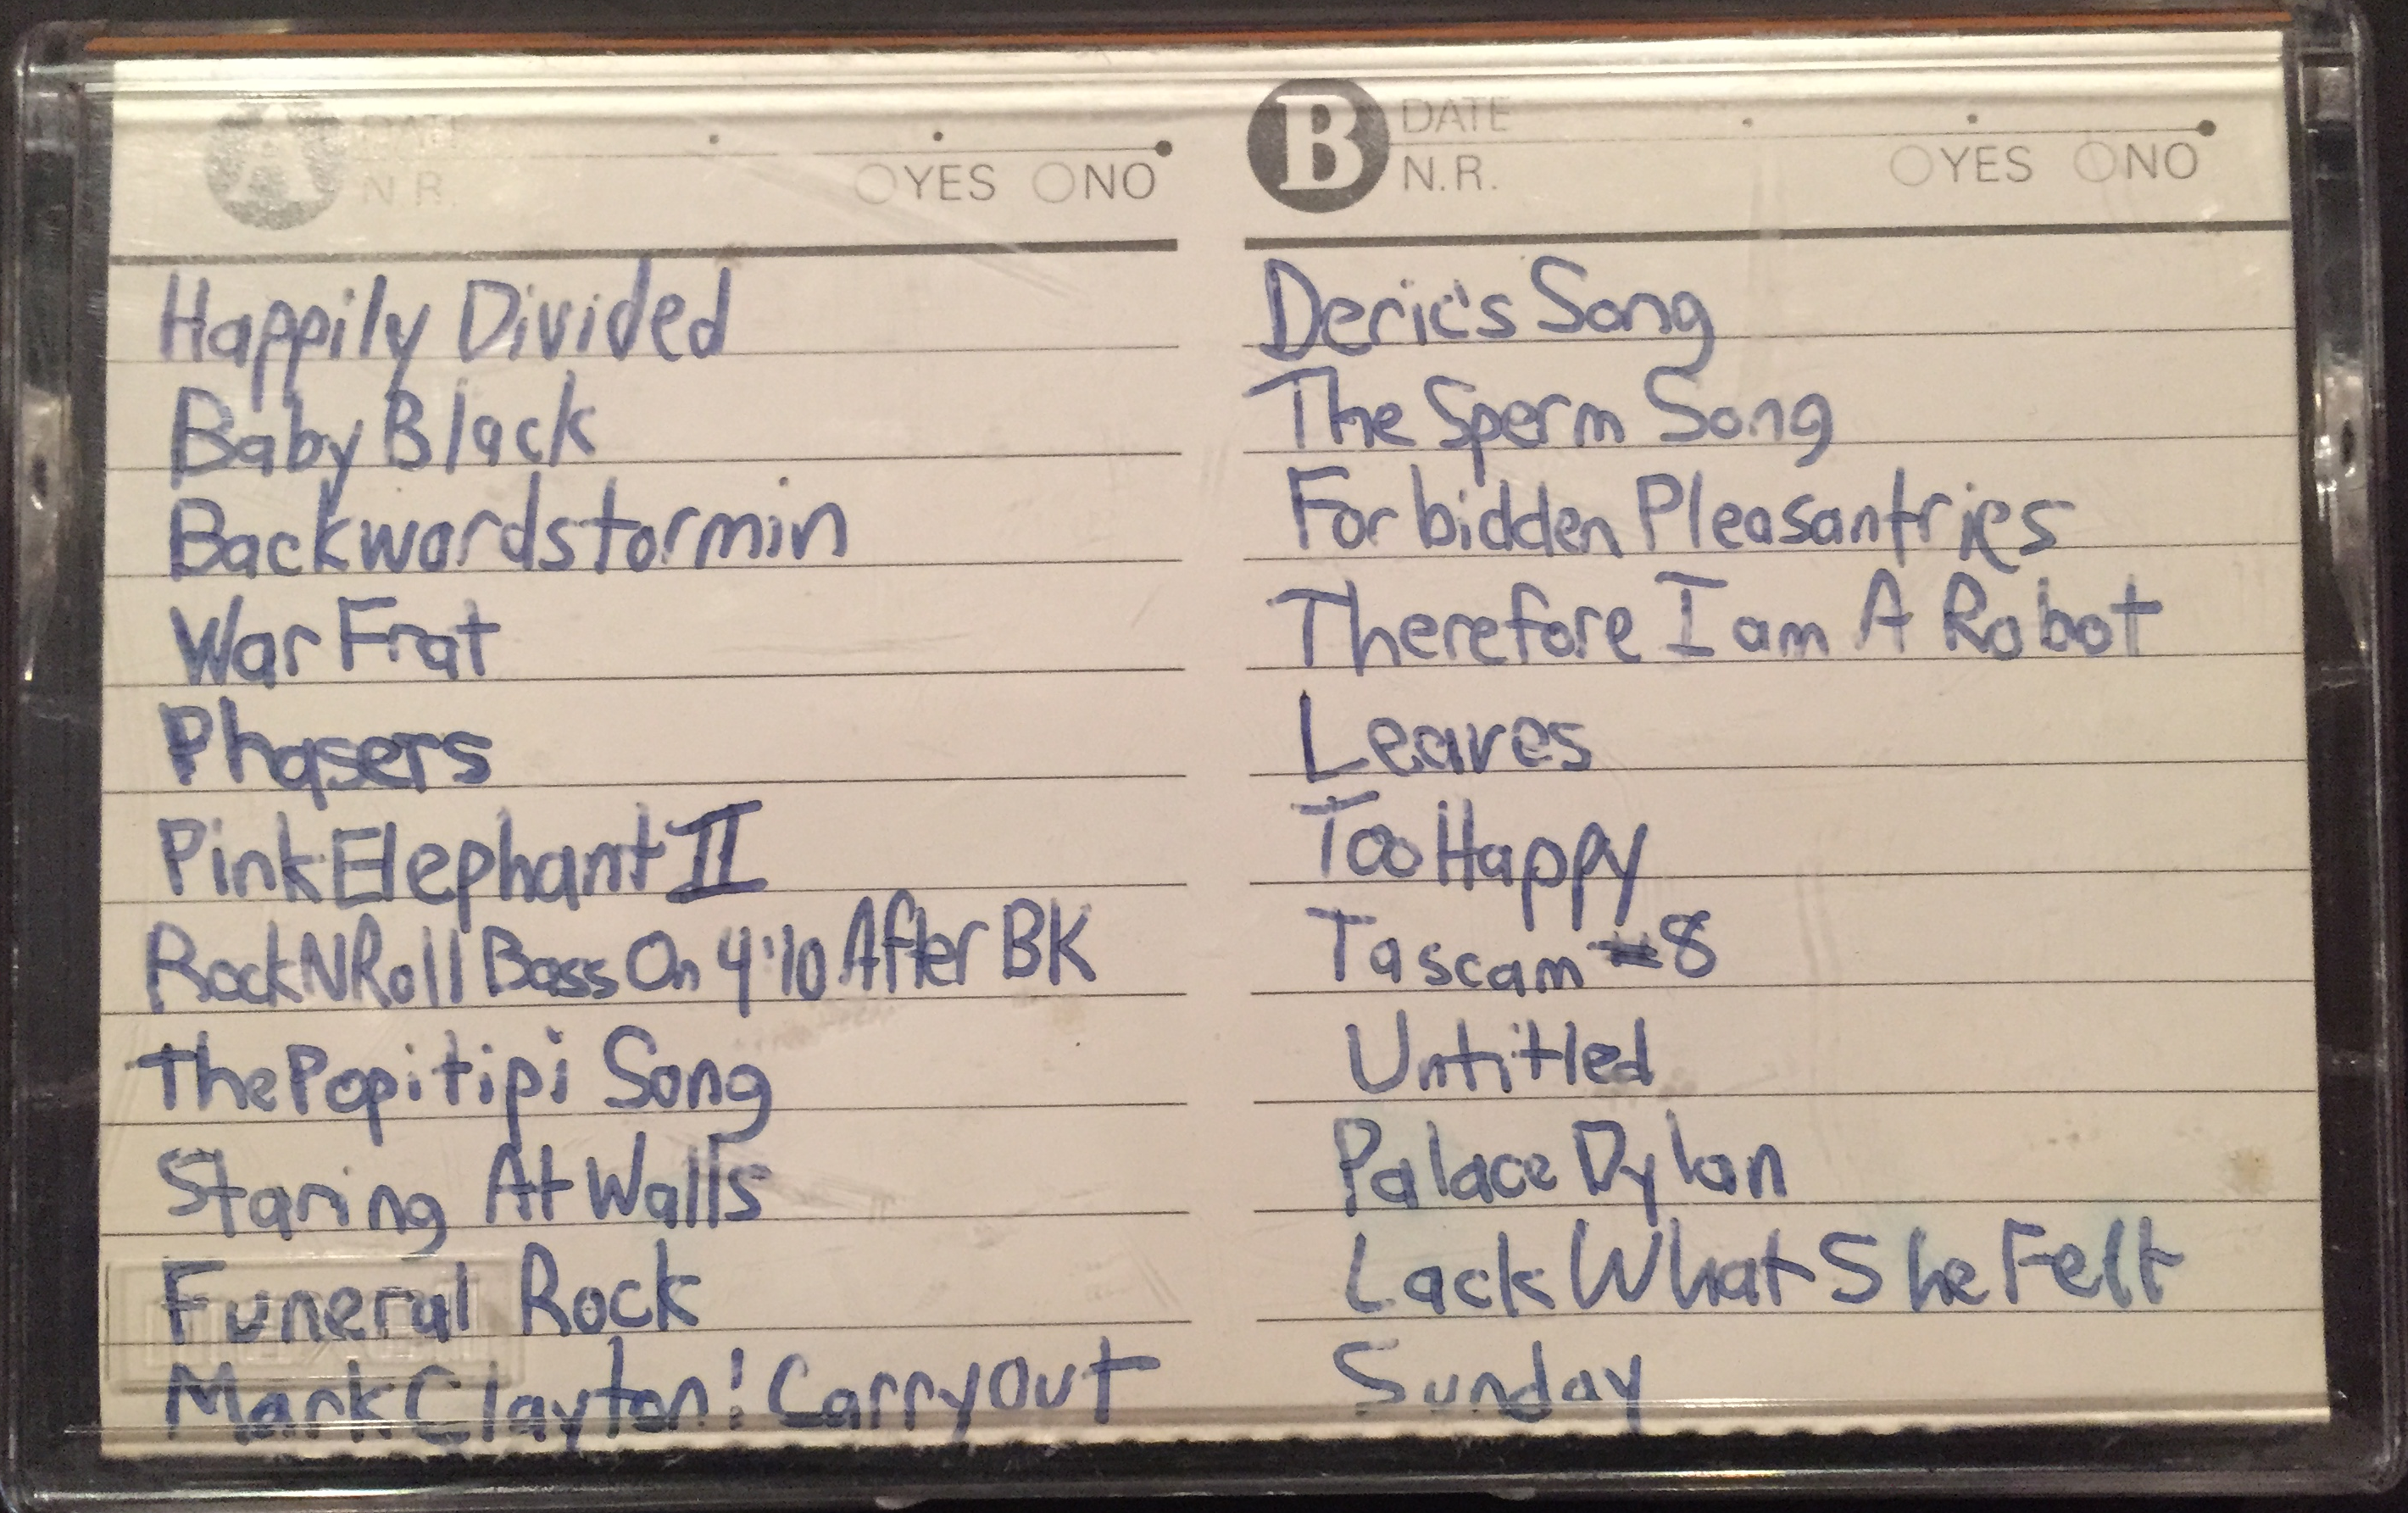 A DATE
N.R. YES NO
Happily Divided
Baby Black
Backwardstormin
War Frat
Phasers
Pink Elephant II
RockNRoll Bass On 4:10 After BK
The Popitipi Song
Staring At Walls
Funeral Rock
Mark Clayton! Carryout
B DATE
N.R. YES NO
Deric's Song
The Sperm Song
Forbidden Pleasantries
Therefore I am A Robot
Leaves
Too Happy
Tascam #8
Untitled
Palace Dylan
Lack What She Felt
Sunday
maxell